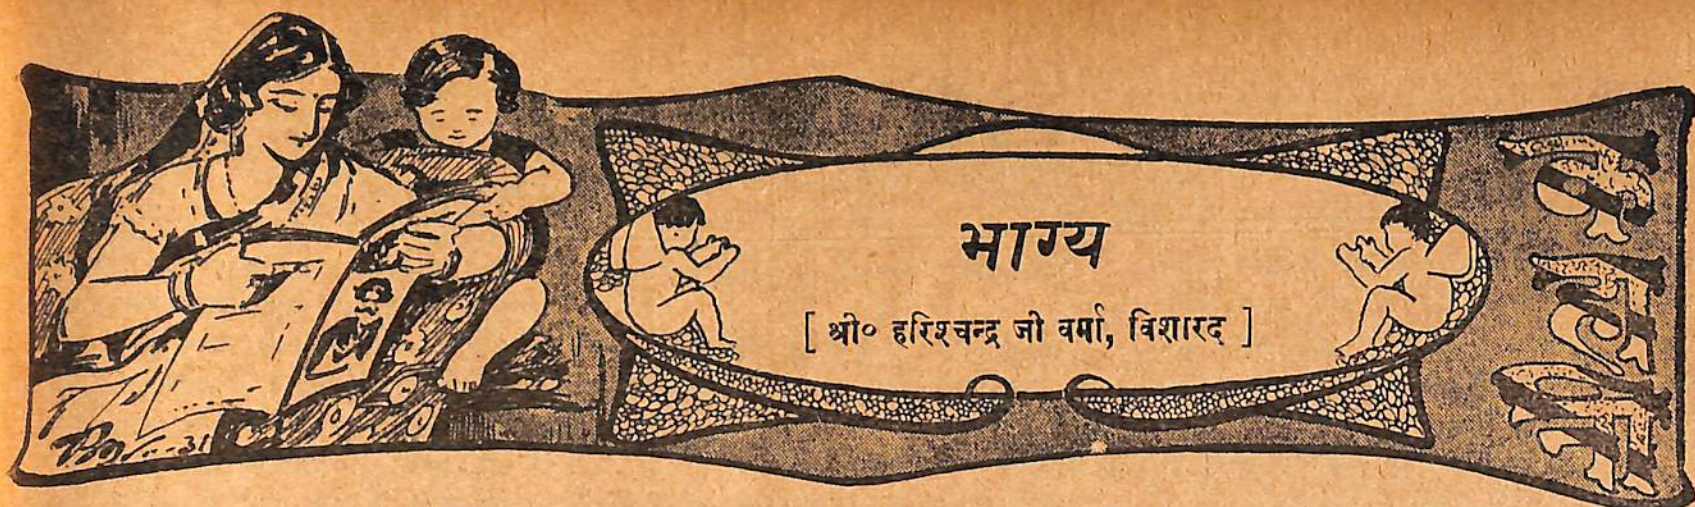 भाग्य
[ श्री० हरिश्चन्द्र जी वर्मा, विशारद ]